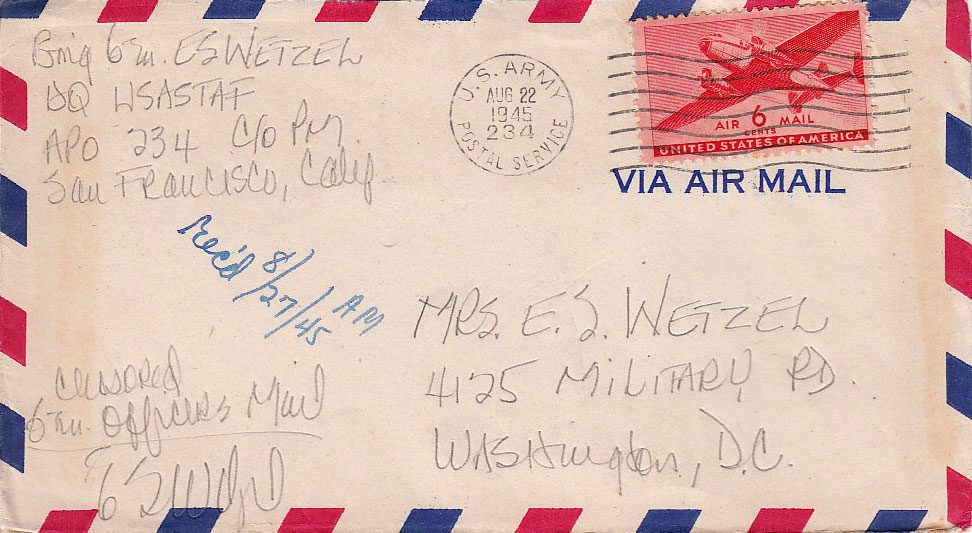 Brig Gen. ES WETZEL
HQ USASTAF
APO 234 C/O PM
San FRancisco, Calif
U.S. ARMY
AUG 22
1945
234
POSTAL SERVICE
AIR 6 MAIL
CENTS
UNITED STATES OF AMERICA
VIA AIR MAIL
Rec'd 8/27/45 AM
MRS. E. S. WETZEL
4125 MILITARY RD.
WASHington, D.C.
censored
Gen. Officers Mail
ESWetzel